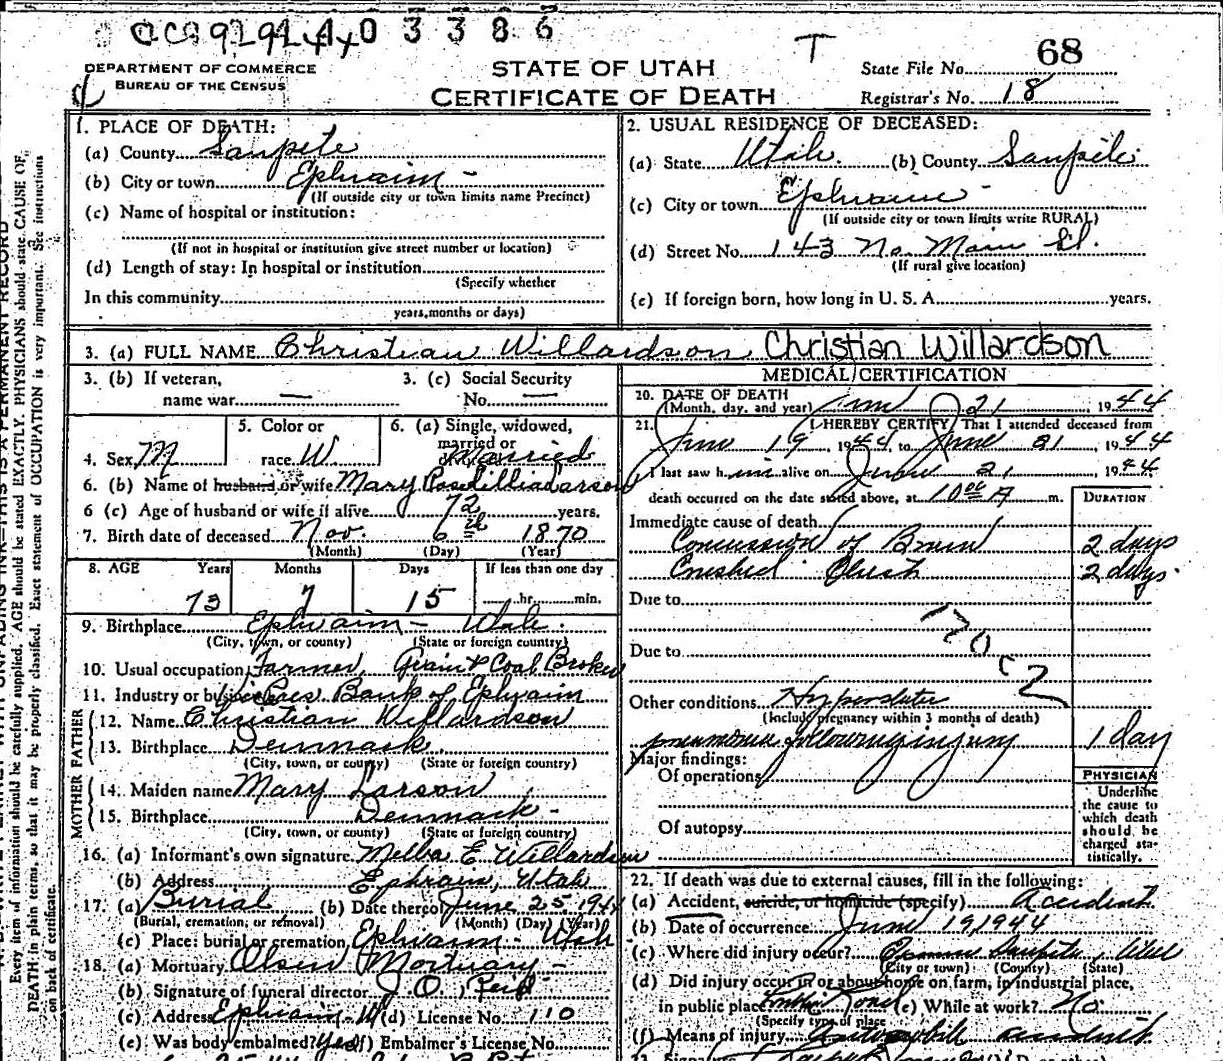 0 3 3 8 6
T
68
DEPARTMENT OF COMMERCE
BUREAU OF THE CENSUS
STATE OF UTAH
CERTIFICATE OF DEATH
State File No.
Registrar's No. 18
1. PLACE OF DEATH:
(a) County Sanpete
(b) City or town Ephraim -
(If outside city or town limits name Precinct)
(c) Name of hospital or institution:
(If not in hospital or institution give street number or location)
(d) Length of stay: In hospital or institution
(Specify whether
In this community
years, months or days)
2. USUAL RESIDENCE OF DECEASED:
(a) State Utah. (b) County Sanpete
(c) City or town Ephraim -
(If outside city or town limits write RURAL)
(d) Street No. 143 No. Main St.
(If rural give location)
(e) If foreign born, how long in U. S. A. years.
3. (a) FULL NAME Christian Willardson Christian Willardson
3. (b) If veteran, name war —
3. (c) Social Security No. —
4. Sex M
5. Color or race W.
6. (a) Single, widowed, married or Married
6. (b) Name of husband or wife Mary Rose Lillia Larson
6 (c) Age of husband or wife if alive 72 years.
7. Birth date of deceased Nov. 6th 1870
(Month) (Day) (Year)
8. AGE Years Months Days If less than one day
73 7 15 hr. min.
9. Birthplace Ephraim - Utah.
(City, town, or county) (State or foreign country)
10. Usual occupation Farmer, Grain & Coal Broker
11. Industry or business Vice Pres. Bank of Ephraim
FATHER
12. Name Christian Willardson
13. Birthplace Denmark.
(City, town, or county) (State or foreign country)
MOTHER
14. Maiden name Mary Larson
15. Birthplace Denmark -
(City, town, or county) (State or foreign country)
16. (a) Informant's own signature Melba E. Willardson
(b) Address Ephraim, Utah
17. (a) Burial (b) Date thereof June 25 1944
(Burial, cremation, or removal) (Month) (Day) (Year)
(c) Place: burial or cremation Ephraim - Utah
18. (a) Mortuary Olsen Mortuary -
(b) Signature of funeral director J. O.
(c) Address Ephraim - U (d) License No. 110
(e) Was body embalmed? Yes (f) Embalmer's License No.
MEDICAL CERTIFICATION
20. DATE OF DEATH
(Month, day, and year) June 21, 1944
21. I HEREBY CERTIFY, That I attended deceased from
June 19, 1944, to June 21, 1944
I last saw him alive on June 21, 1944
death occurred on the date stated above, at 10 00 A m.
DURATION
Immediate cause of death
Concussion of Brain 2 days
Crushed Chest 2 days.
Due to
Due to
170 c 2
Other conditions Hypostatic
(Include pregnancy within 3 months of death)
pneumonia following injury 1 day
Major findings:
Of operations
Of autopsy
PHYSICIAN
Underline
the cause to
which death
should be
charged sta-
tistically.
22. If death was due to external causes, fill in the following:
(a) Accident, suicide, or homicide (specify) Accident
(b) Date of occurrence June 19, 1944
(c) Where did injury occur? Sanpete, Utah
(City or town) (County) (State)
(d) Did injury occur in or about home on farm, in industrial place,
in public place (e) While at work? No
(Specify type of place)
(f) Means of injury Automobile accident
Every item of information should be carefully supplied. AGE should be stated EXACTLY. PHYSICIANS should state CAUSE OF
DEATH in plain terms, so that it may be properly classified. Exact statement of OCCUPATION is very important. See instructions
on back of certificate.